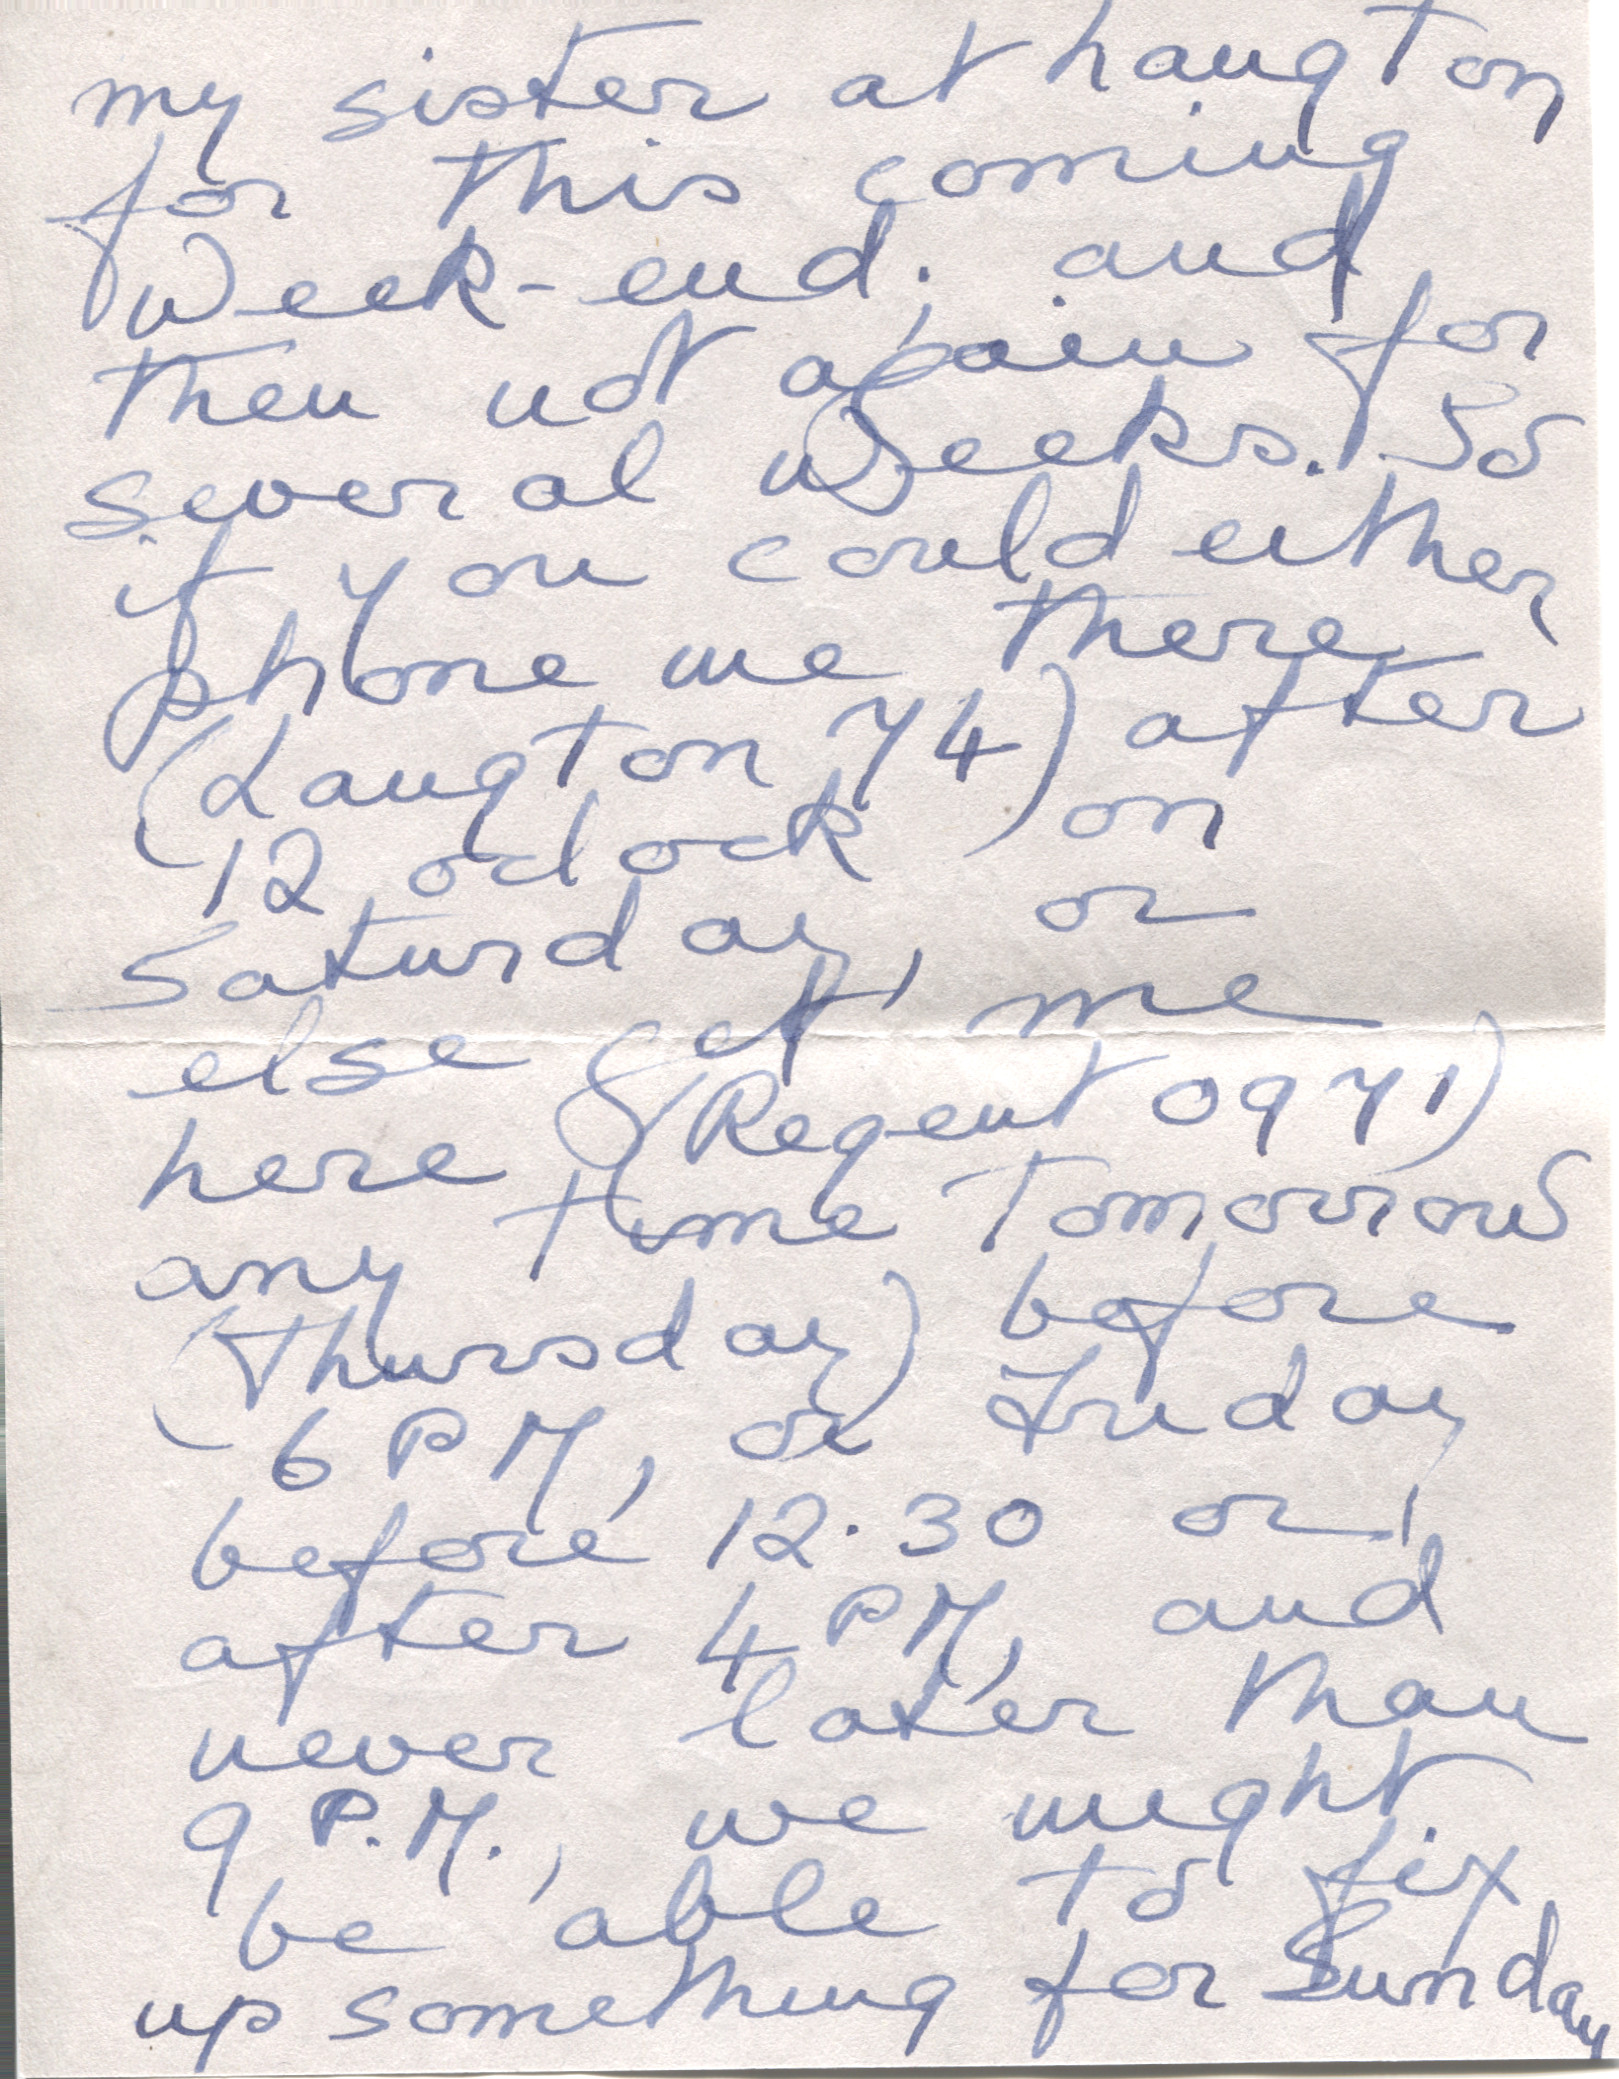 my sister at Langton
for this coming
week-end, and
then not again for
several weeks. So
if you could either
phone me there
(Langton 74) after
12 oclock on
Saturday, or
else get me
here (Regent 0971)
any time tomorrow
(Thursday) before
6 PM, or Friday
before 12.30 or,
after 4 PM, and
never later than
9 P.M., we might
be able to fix
up something for Sunday